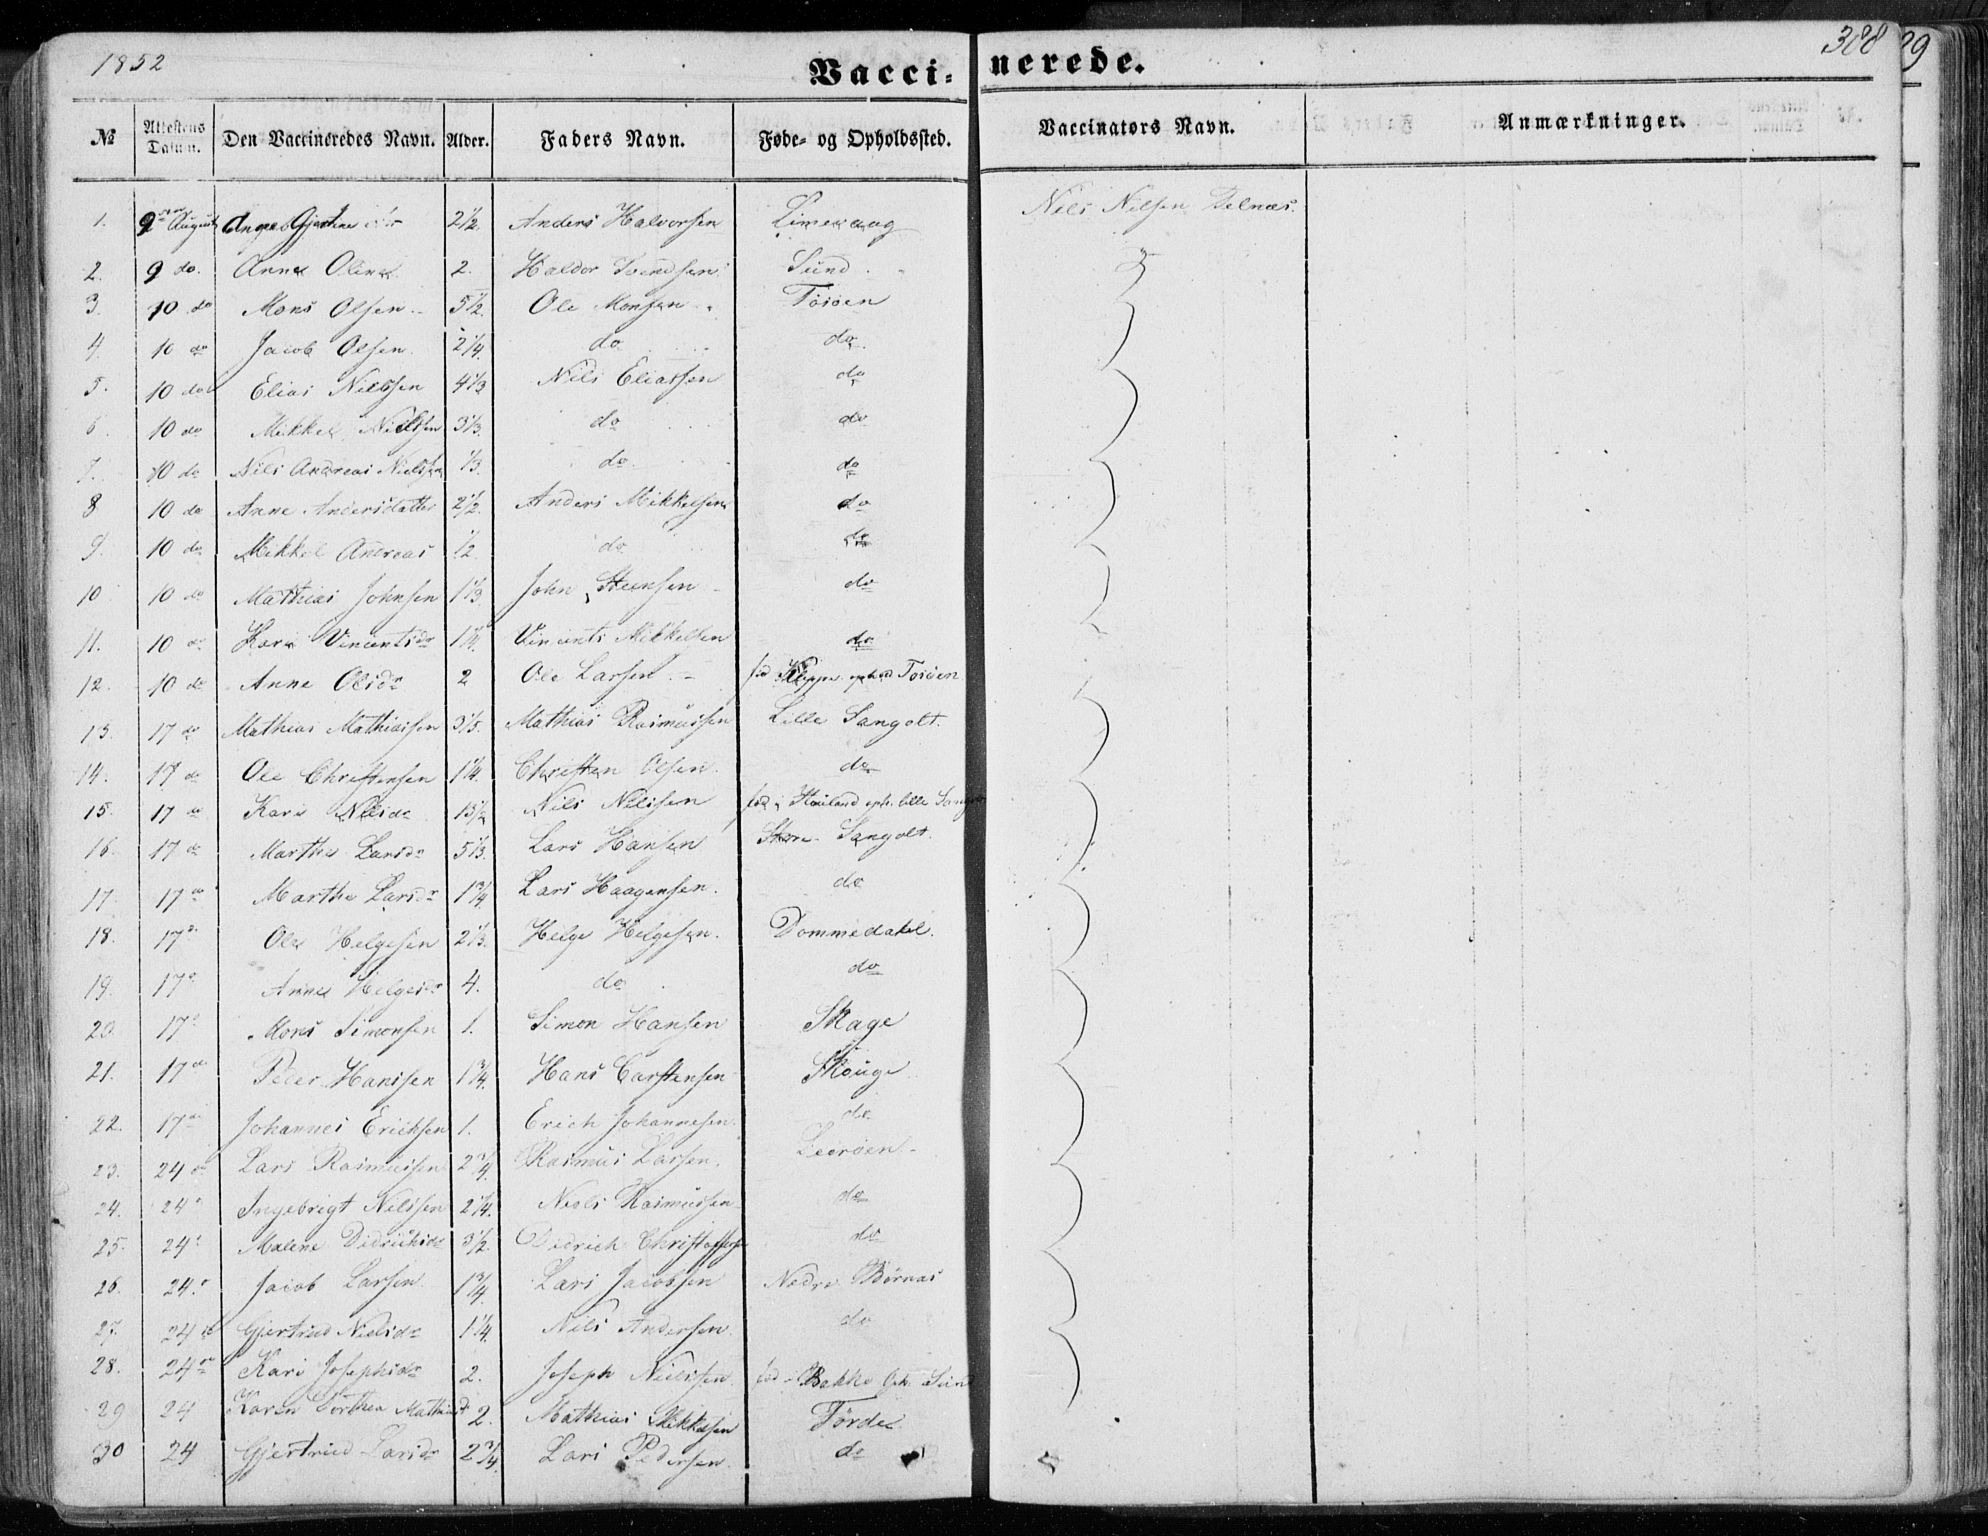 1852
Vaccinerede.
388
29
№ Attestens Datum. Den Vaccineredes Navn. Alder. Faders Navn. Føde- og Opholdssted. Vaccinators Navn. Anmærkninger.
1. 9 August Gjertine 2 1/2 Anders Halvorsen Limevaag Nils Nilsen
2. 9 do. Anne Oline 2. Haldor Svendsen Sund
3. 10 do Mons Olsen 5 1/2 Ole Monsen Tøsøen
4. 10 do Jacob Olsen 2 1/4 do do
5. 10 do Elias Nielssen 4 1/3 Nils Eliassen do
6. 10 do Mikkel Nielssen 3 1/3 do do
7. 10 do Nils Andreas Nielssen 1/3 do do
8 10 do Anne Andersdatter 2 1/2 Anders Mikkelsen do
9. 10 do Mikkel Andreas 1/2 do do
10 10 do Mathias Johnsen 1 1/3 John Steensen do
11. 10 do Kari Vincentsdr 1 1/4 Vincents Mikkelsen do
12. 10 do Anne Olsdr 2 Ole Larsen fød Kleppe opho Tøsøen
13. 17 do Mathias Mathiassen 3 1/3 Mathias Rasmussen Lille Sangolt.
14. 17 do Ole Christensen 1 1/4 Christen Olsen do
15. 17 do Kari Nilsdr 13 1/2 Nils Nilssen fød i oph. lille
16. 17 do Martha Larsdr 5 1/3 Lars Hansen Store Sangolt.
17. 17 do Martha Larsdr 1 3/4 Lars Haagensen. do
18. 17 do Ole Helgesen 2 1/3 Helge Helgesen. Dommedahl.
19. 17 do Anne Helgesdr 4. do do
20. 17 do Mons Simonsen 1. Simon Hansen Skage
21. 17 do Peder Hanssen 1 3/4 Hans Carstensen Skouge
22. 17 do Johannes Ericksen 1. Erich Johannesen. do
23. 24 do Lars Rasmussen 2 3/4 Rasmus Larsen. Leerøen
24. 24 do Ingebrigt Nilssen 2 1/4 Niels Rasmussen do
25. 24 do Malene Didrichsdr 3 1/2 Didrich Christoffersen do
26. 24 do Jacob Larsen 1 3/4 Lars Jacobsen Nedre Børnæs
27. 24 do Gjertrud Nielsdr 1 1/4 Nils Andersen. do
28. 24 do Kari Josephsdr 2. Joseph Nielssen fød i Bakke Oph. Sund
29 24 Karen Dorthea Mathiasd 2. Mathias Mikkelsen Førde
30 24 Gjertrud Larsdr 2 3/4 Lars Pedersen do